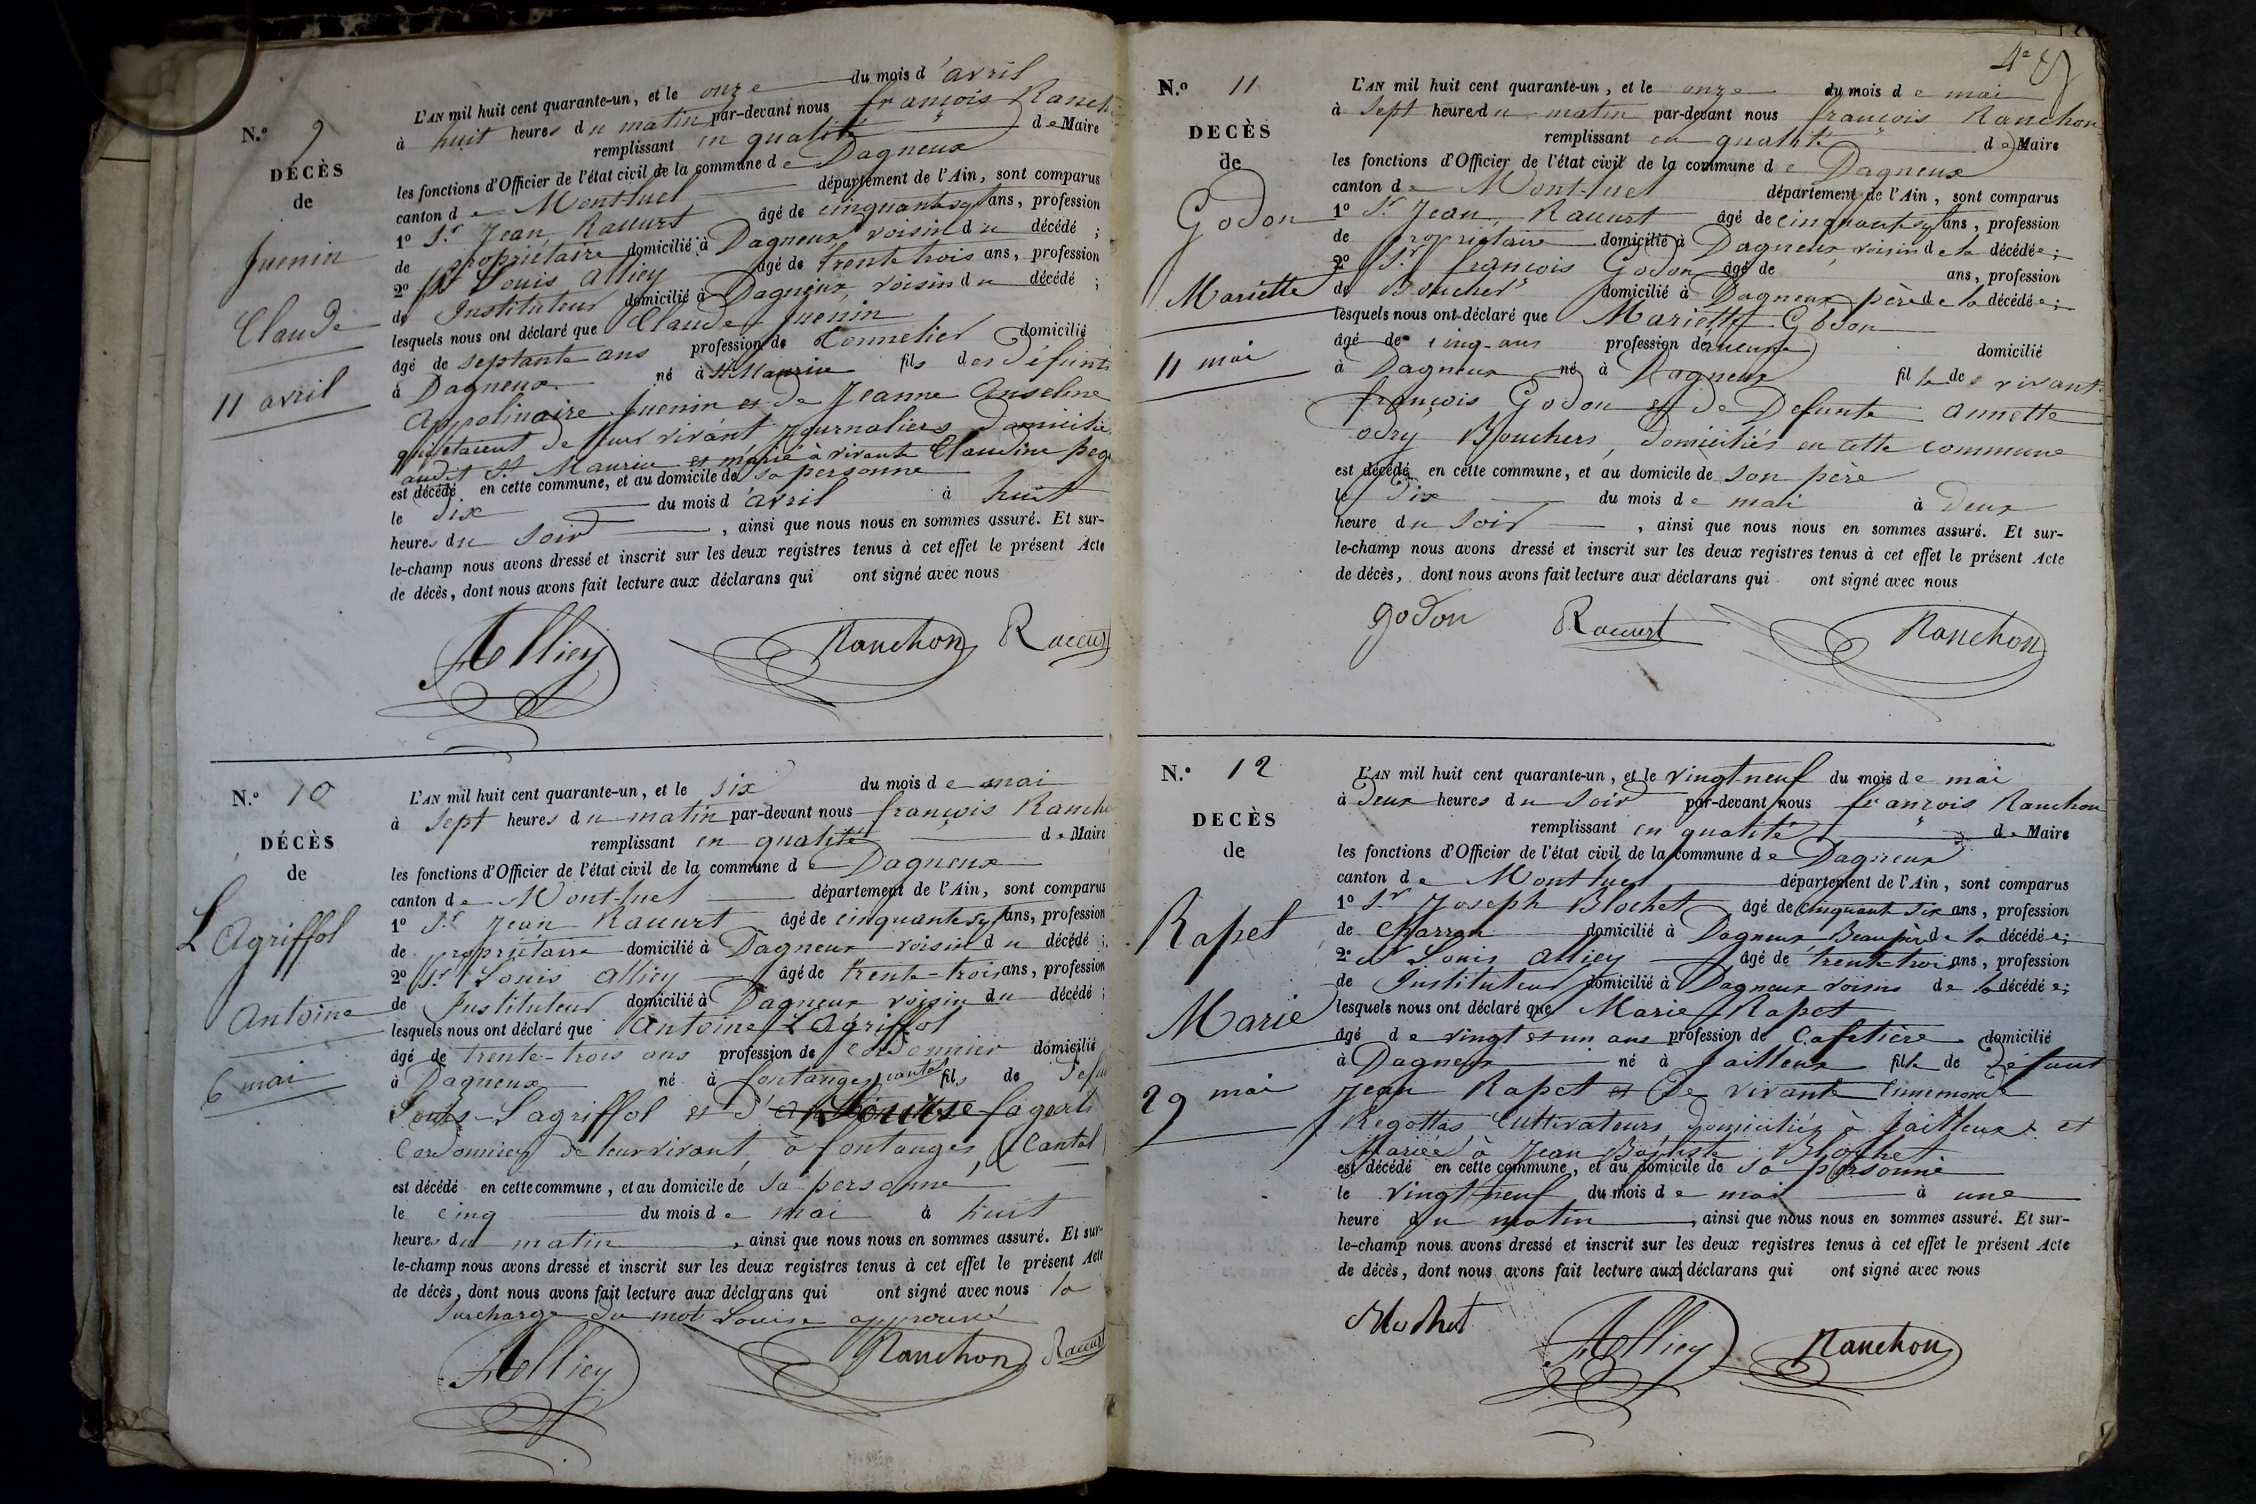 N.º 9
DÉCÈS
de
Juenin
Claude
11 avril
L'AN mil huit cent quarante-un, et le onze du mois d'avril
à huit heures du matin par-devant nous françois Ranch
remplissant en qualité de Maire
les fonctions d'Officier de l'état civil de la commune de Dagneux
canton de Mont-luel département de l'Ain, sont comparus
1º Sr Jean Raccurt âgé de cinquante sept ans, profession
de propriétaire domicilié à Dagneux voisin du décédé ;
2º Sr Louis Alliey âgé de trente trois ans, profession
de Instituteur domicilié à Dagneux, voisin du décédé ;
lesquels nous ont déclaré que Claude Juenin
âgé de septante ans profession de Tonnelier domicilié
à Dagneux né à St Maurice fils des défunts
Appolinaire Juenin et de Jeanne Anseline
qui étaient de leur vivant Journaliers Domiciliés
audit St Maurice et marié à vivante Claudine
est décédé en cette commune, et au domicile de sa personne
le dix du mois d'avril à huit
heures du soir, ainsi que nous nous en sommes assuré. Et sur-
le-champ nous avons dressé et inscrit sur les deux registres tenus à cet effet le présent Acte
de décès, dont nous avons fait lecture aux déclarans qui ont signé avec nous
Alliey Ranchon Raccurt
N.º 10
DÉCÈS
de
LAgriffol
Antoine
6 mai
L'AN mil huit cent quarante-un, et le six du mois de mai
à sept heures du matin par-devant nous françois Rancho
remplissant en qualité de Maire
les fonctions d'Officier de l'état civil de la commune de Dagneux
canton de Mont-luel département de l'Ain, sont comparus
1º Sr Jean Raccurt âgé de cinquante sept ans, profession
de propriétaire domicilié à Dagneux voisin du décédé ;
2º Sr Louis Alliey âgé de trente-trois ans, profession
de Instituteur domicilié à Dagneux voisin du décédé ;
lesquels nous ont déclaré que Antoine LAgriffol
âgé de trente-trois ans profession de Cordonnier domicilié
à Dagneux né à fontanges cantal fils de defu
Louis Lagriffol et d' Louise
Cordonniers de leur vivant à fontanges, (Cantal)
est décédé en cette commune, et au domicile de sa personne
le cinq du mois de mai à huit
heures du matin, ainsi que nous nous en sommes assuré. Et sur-
le-champ nous avons dressé et inscrit sur les deux registres tenus à cet effet le présent Acte
de décès, dont nous avons fait lecture aux déclarans qui ont signé avec nous la
surcharge du mot Louise approuvé
Alliey Ranchon Raccurt
4e
N.º 11
DECÈS
de
Godon
Mariette
11 mai
L'AN mil huit cent quarante-un, et le onze du mois de mai
à sept heures du matin par-devant nous françois Ranchon
remplissant en qualité de Maire
les fonctions d'Officier de l'état civil de la commune de Dagneux
canton de Mont-luel département de l'Ain, sont comparus
1º Sr Jean Raccurt âgé de cinquante sept ans, profession
de propriétaire domicilié à Dagneux, voisin de la décédée ;
2º Sr françois Godon âgé de ans, profession
de Boucher domicilié à Dagneux père de la décédée ;
lesquels nous ont déclaré que Mariette Godon
âgé de cinq ans profession de aucune domicilié
à Dagneux né à Dagneux fille de s vivant
françois Godon et de Defunte annette
odry Bouchers, domiciliés en cette commune
est décédé en cette commune, et au domicile de son père
le dix du mois de mai à deux
heure du soir, ainsi que nous nous en sommes assuré. Et sur-
le-champ nous avons dressé et inscrit sur les deux registres tenus à cet effet le présent Acte
de décès, dont nous avons fait lecture aux déclarans qui ont signé avec nous
godon Raccurt Ranchon
N.º 12
DECÈS
de
Rapet
Marie
29 mai
L'AN mil huit cent quarante-un, et le vingt neuf du mois de mai
à deux heures du soir par-devant nous françois Ranchon
remplissant en qualité de Maire
les fonctions d'Officier de l'état civil de la commune de Dagneux
canton de Mont luel département de l'Ain, sont comparus
1º Sr Joseph Blochet âgé de cinquante six ans, profession
de Charron domicilié à Dagneux Beau père de la décédée ;
2º Sr Louis Alliey âgé de trente-trois ans, profession
de Instituteur domicilié à Dagneux voisin de la décédée ;
lesquels nous ont déclaré que Marie Rapet
âgé de vingt et un ans profession de Cafetière domicilié
à Dagneux né à Jailleux fille de Défunt
Jean Rapet et De vivante
Regottas Cultivateurs domiciliés à Jailleux et
Mariée à Jean Baptiste Blochet
est décédé en cette commune, et au domicile de sa personne
le vingt neuf du mois de mai à une
heure du matin, ainsi que nous nous en sommes assuré. Et sur-
le-champ nous avons dressé et inscrit sur les deux registres tenus à cet effet le présent Acte
de décès, dont nous avons fait lecture aux déclarans qui ont signé avec nous
Blochet Alliey Ranchon